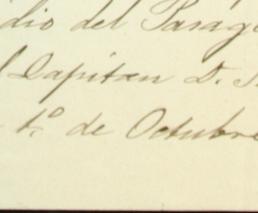 dio del Parag
l Capitan D. J
1.º de Octubre